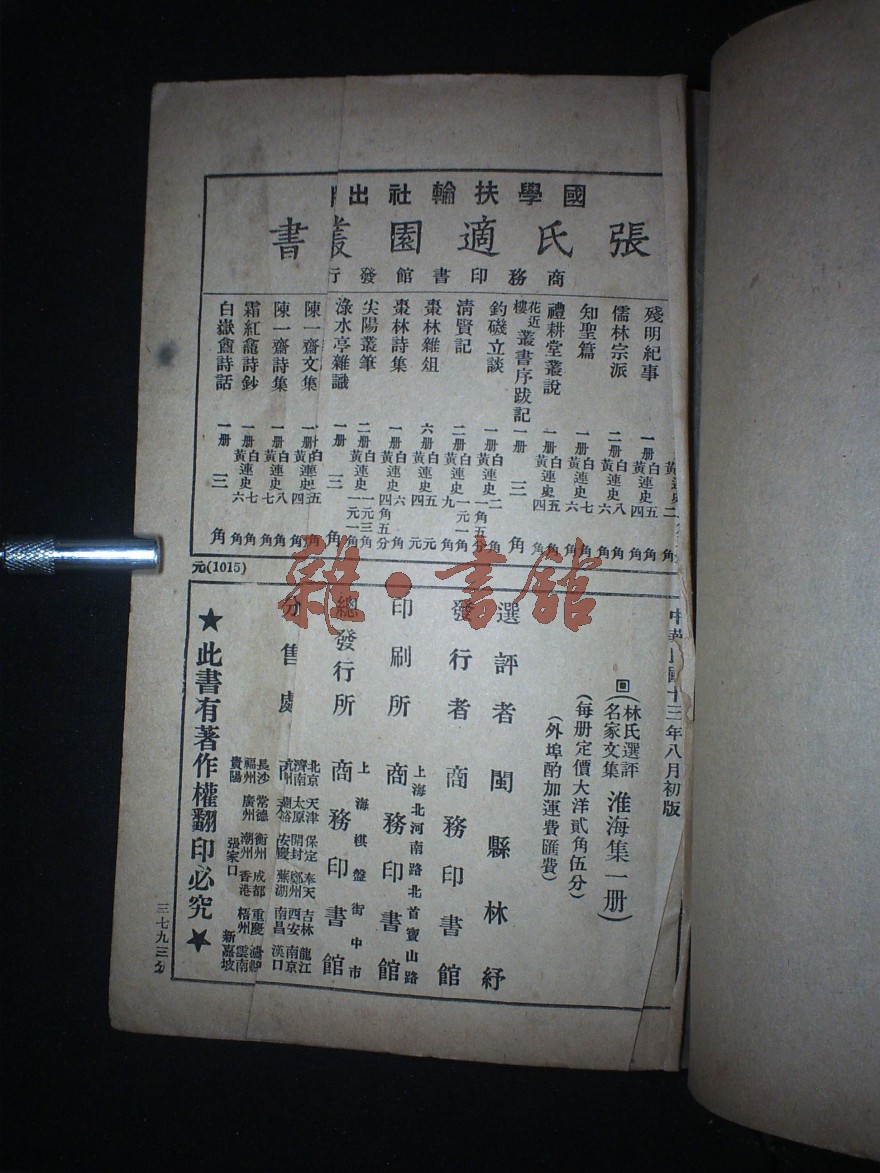 國學扶輪社出
張氏適園叢書
商務印書館發行
殘明紀事 一册 白連史五角 黃連史四角
儒林宗派 二册 白連史八角 黃連史六角
知聖篇 一册 白連史七角 黃連史六角
禮耕堂叢說 一册 白連史五角 黃連史四角
花近樓叢書序跋記 一册 三角
釣磯立談 一册 白連史二角
清賢記 二册
棗林雜俎 六册
棗林詩集 一册
尖陽叢筆 二册
淥水亭雜識 一册 三角
陳一齋文集 一册 白連史五角 黃連史四角
陳一齋詩集 一册 白連史八角 黃連史七角
霜紅龕詩鈔 一册 白連史七角 黃連史六角
白嶽盦詩話 一册 三角
元(1015)
中華民國十三年八月初版
(林氏選評名家文集 淮海集一册)
(每册定價大洋貳角伍分)
(外埠酌加運費匯費)
選評者 閩縣林紓
發行者 商務印書館
印刷所 上海北河南路北首寶山路 商務印書館
總發行所 上海棋盤街中市 商務印書館
分售處
北京 天津 保定 奉天 吉林 龍江
濟南 太原 開封 鄭州 西安 南京
杭州 蘭谿 安慶 蕪湖 南昌 漢口
長沙 常德 衡州 成都 重慶
福州 廣州 潮州 香港 梧州 雲南
貴陽 張家口 新嘉坡
★此書有著作權翻印必究★
三七九三分
雜·書館